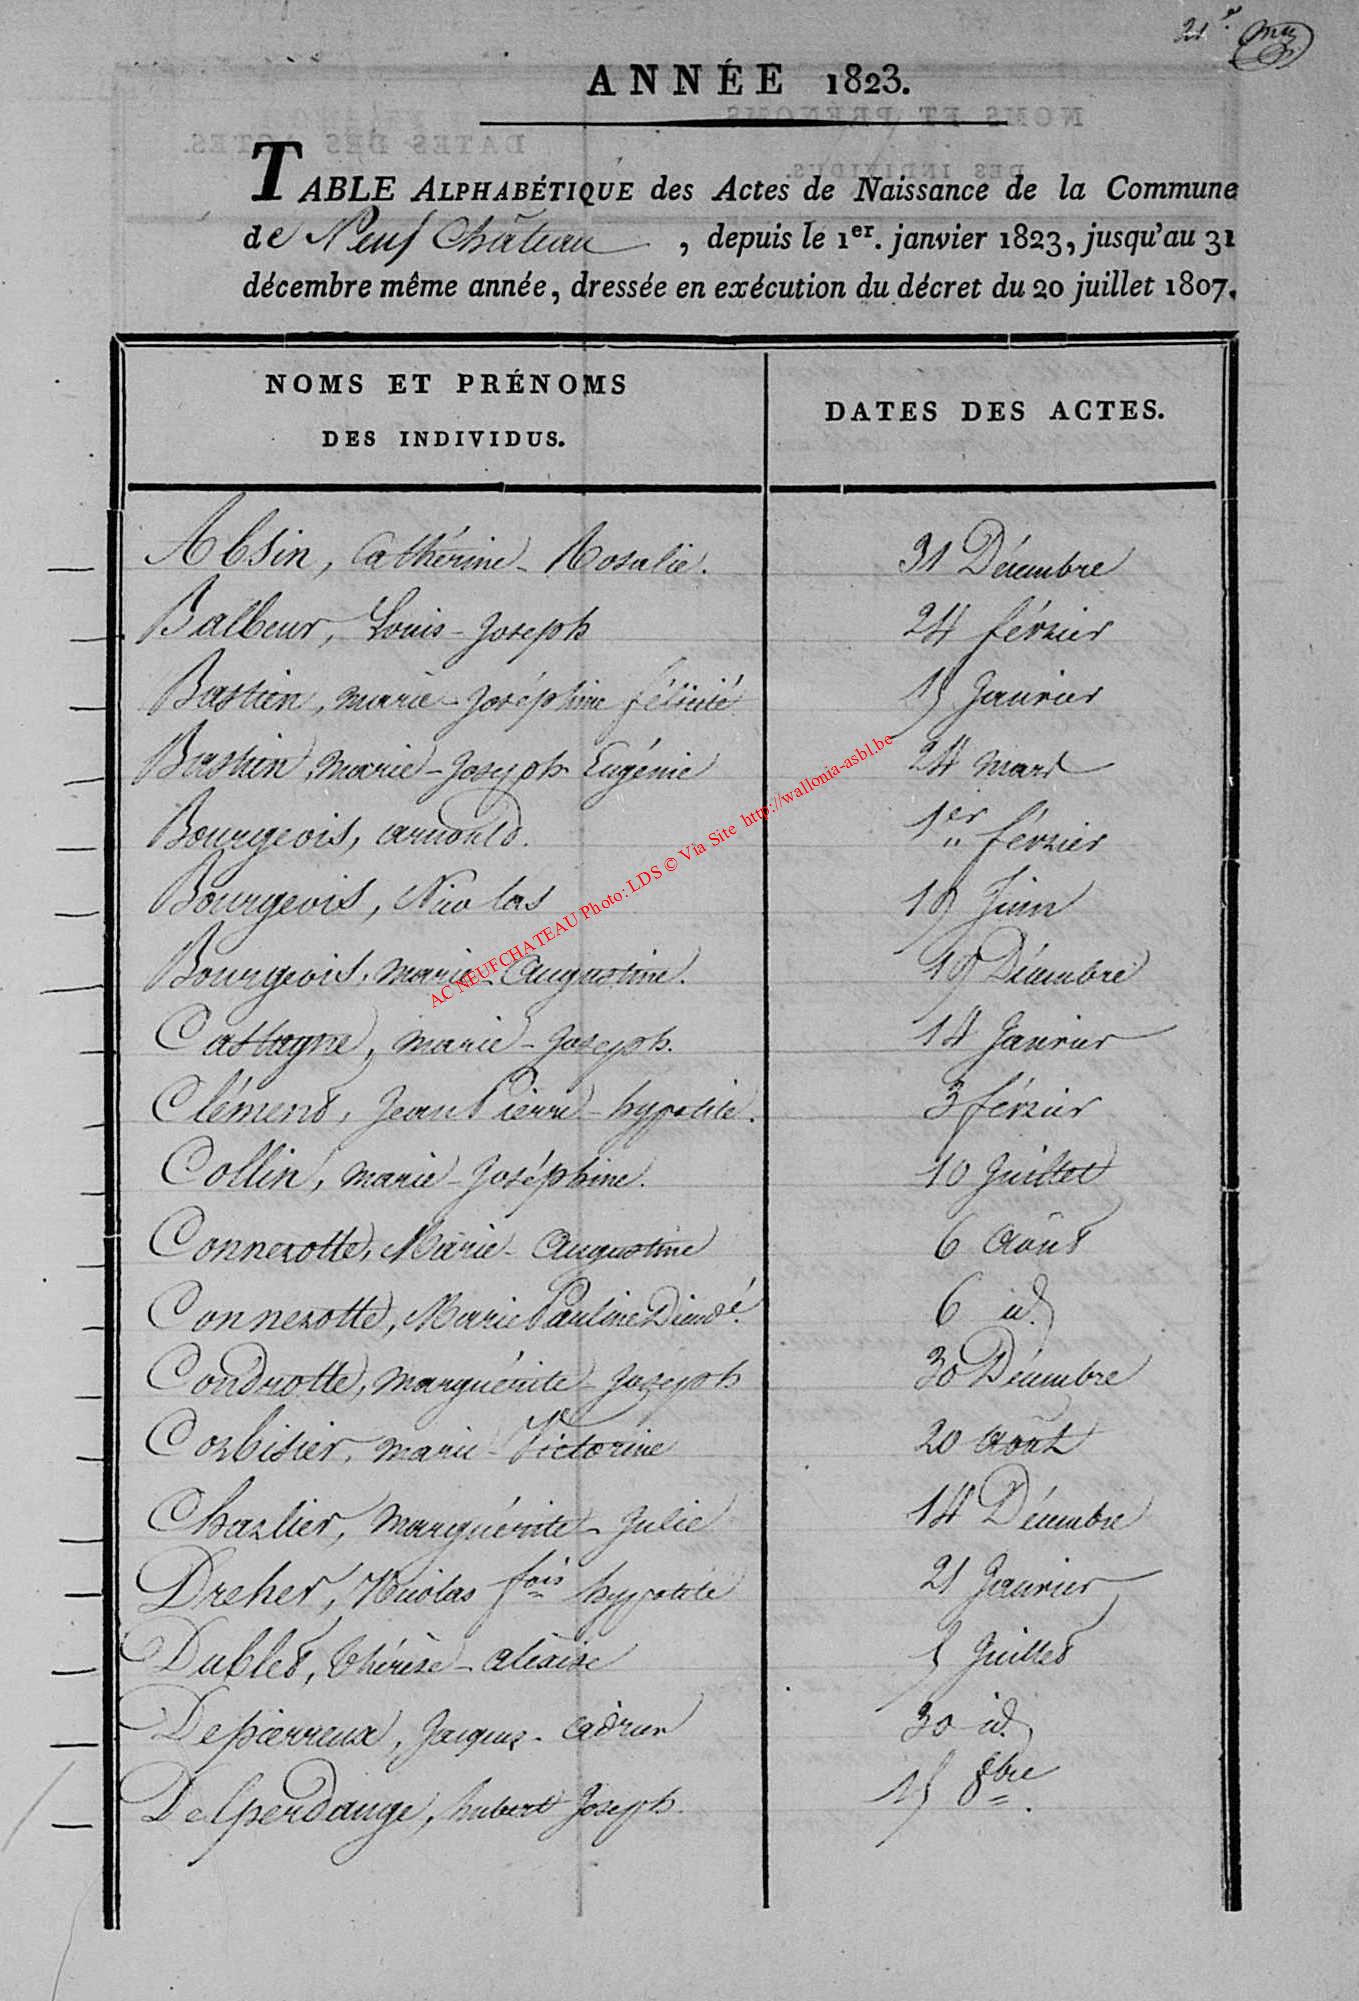 ANNÉE 1823.
TABLE ALPHABÉTIQUE des Actes de Naissance de la Commune
de Neuf Château, depuis le 1er. janvier 1823, jusqu'au 31
décembre même année, dressée en exécution du décret du 20 juillet 1807.
NOMS ET PRÉNOMS
DES INDIVIDUS.
DATES DES ACTES.
Absin, Cathérine-Rosalie. 31 Décembre
Balbeur, Louis-Joseph 24 février
Bastien, marie-Joséphine félicité 15 Janvier
Bastien, Marie-Joseph Eugénie 24 mars
Bourgeois, arnould. 1er février
Bourgeois, Nicolas 19 Juin
Bourgeois, marie-Augustine. 19 Décembre
Castagne, marie-Joseph. 14 Janvier
Clément, Jean Pierre-hypolite. 3 février
Collin, marie-Joséphine. 10 Juillet
Connerotte, Marie-Augustine 6 Août
Connerotte, Marie Pauline Dieudé. 6 id.
Condrotte, marguérite-Joseph 30 Décembre
Corbisier, marie-Victorine 20 Août
Charlier, marguérite-Julie 14 Décembre
Dreher, Nicolas fois hypolite 21 Janvier
Dublet, thérèse-aléxise 5 Juillet
Depierreux, Jacques-Adrien 30 id.
Delperdange, hubert Joseph. 15 8bre.
AC NEUFCHATEAU Photo: LDS © Via Site http://wallonia-asbl.be